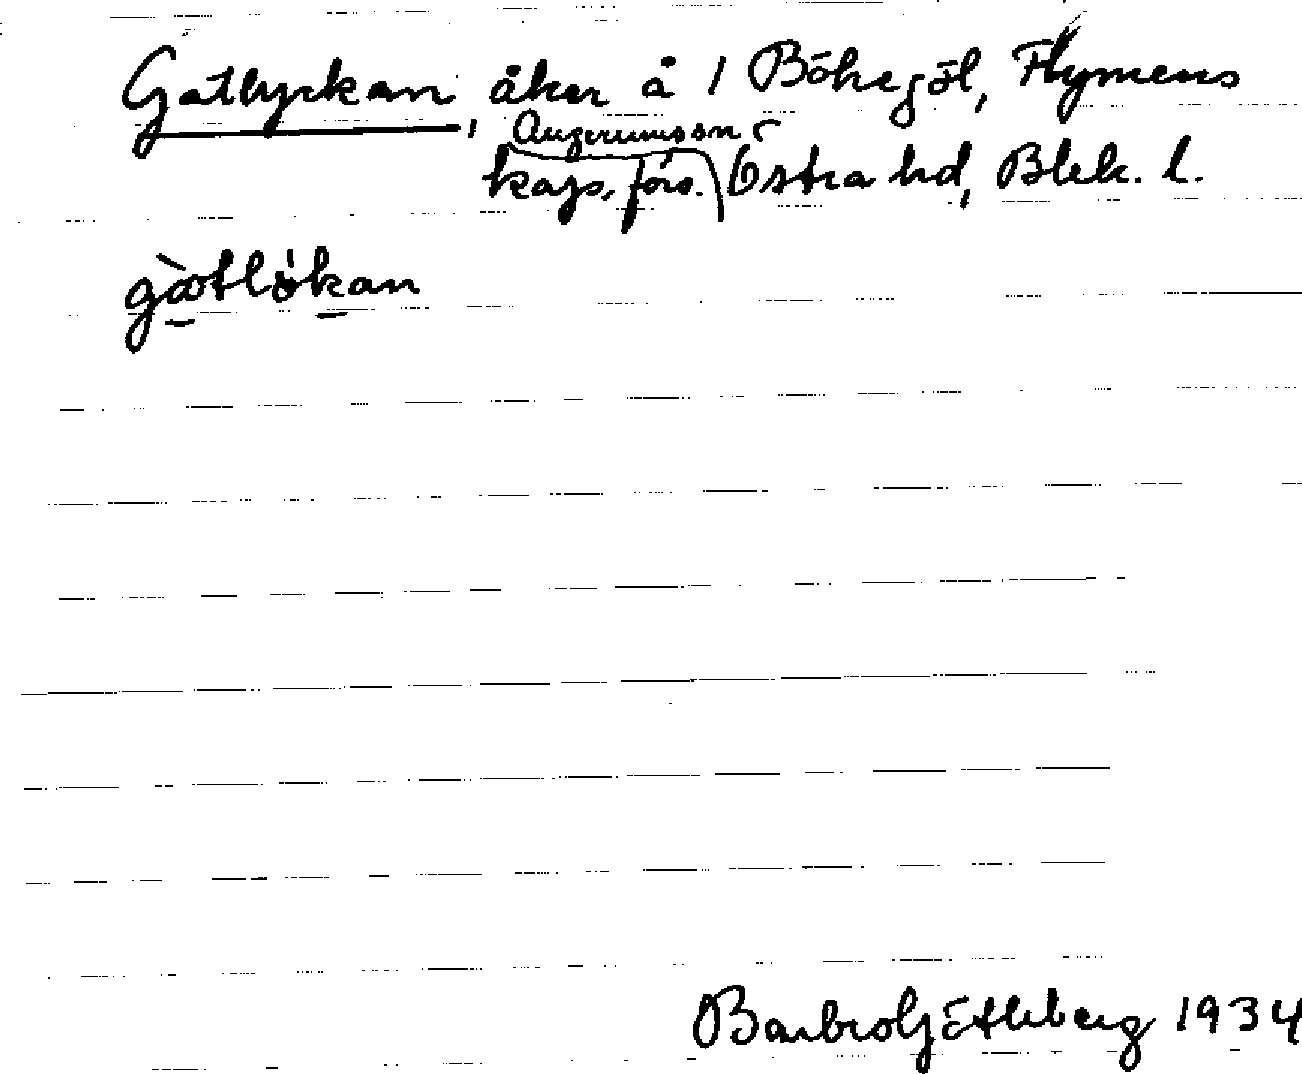 Gatlyckan, åker å 1 Bökegöl, Flymens
Augerums sn
kaps. förs. Östra hd, Blek. l.
gàtlókan
Barbro Götheberg 1934